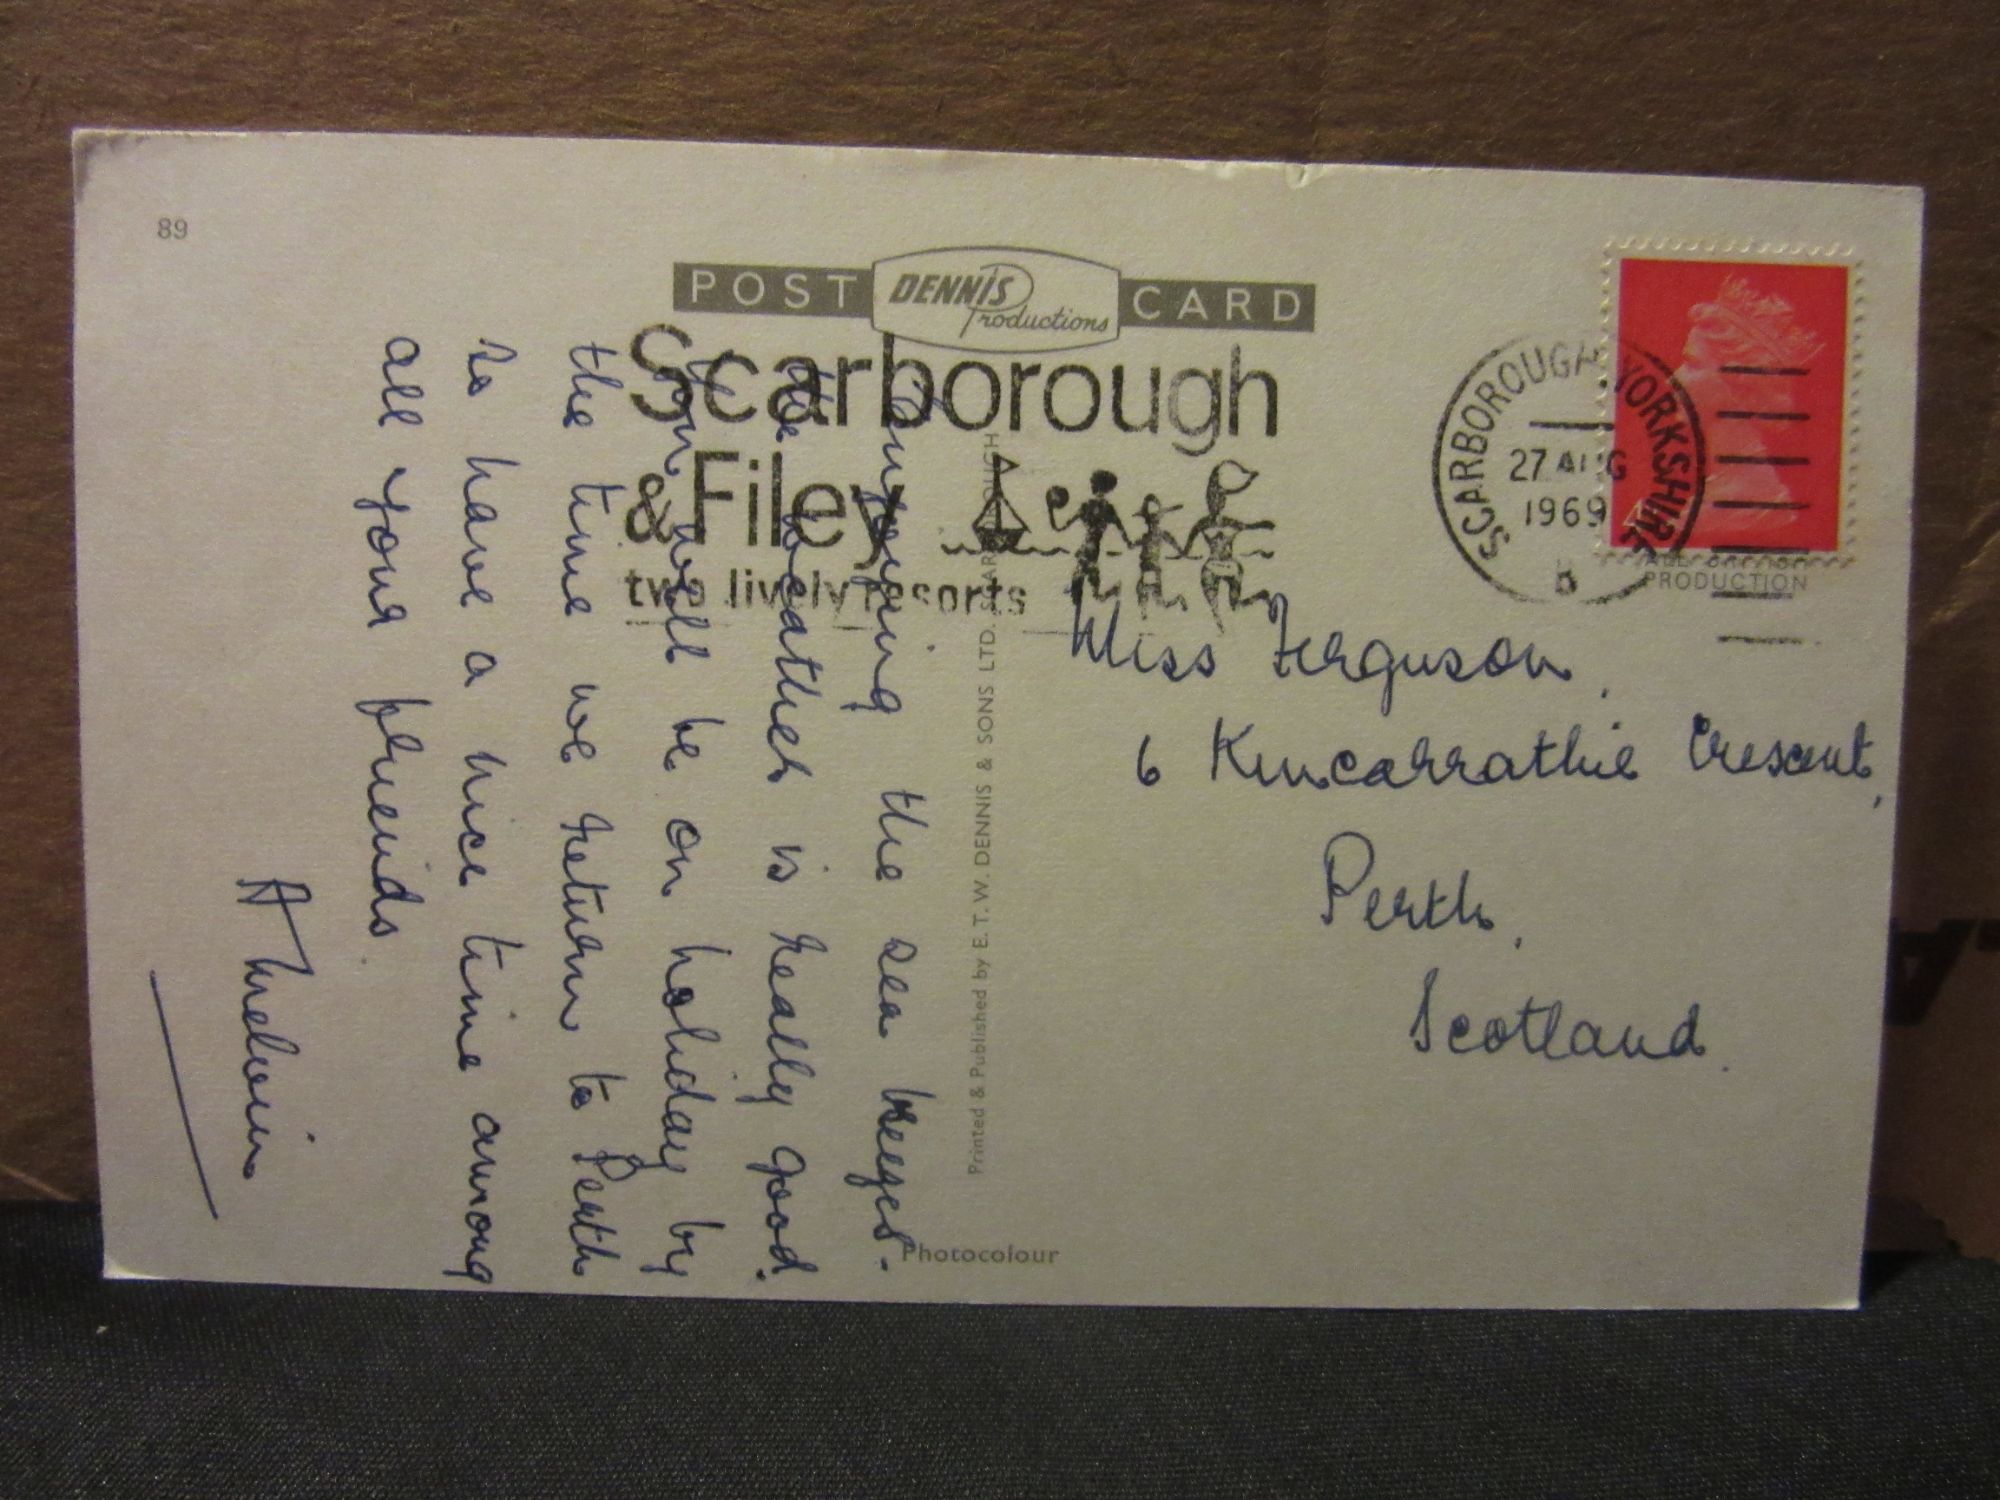 89
POST DENNIS Productions CARD
Scarborough
& Filey
two lively resorts
SCARBOROUGH YORKSHIRE
27 AUG
1969
PRODUCTION
Enjoying the sea breezes.
The weather is really good.
You will be on holiday by
the time we return to Perth
so have a nice time among
all your friends.
A Melvin
Printed & Published by E. T. W. DENNIS & SONS LTD. SCARBOROUGH
Miss Ferguson,
6 Kincarrathie Crescent,
Perth,
Scotland.
Photocolour